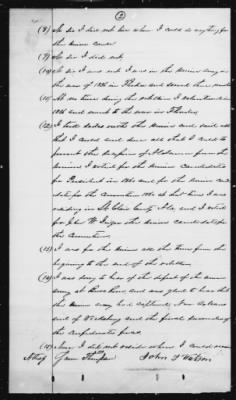 (2)
(8) No Sir I did not but when I could do anything for
the Union cause
(9) No Sir I did not
(10) No Sir I was not I was in the Union Army in
the war of 1836 in Florida and served three months
(11) At no time during the rebellion I volunteered in
1836 and went to the war in Florida
(12) I took sides with the Union and said all
that I could and done all that I could to
prevent the Secession of Alabama from the
Union I voted for the Union Candidates
for President in 1860 and for the Union can
didate for the Convention 1860 at that time I was
residing in St Clair County Ala and I voted
for John W Inzer the Union candidate for
the Convention
(13) I was for the Union all the time from the
beginning to the end of the rebellion
(14) I was sorry to hear of the defeat of the Union
army at Bull Run and was glad to hear that
the Union army had captured New Orleans
and of Vicksburg and the final surrender of
the Confederate forces
(15) Sir I did not
Attest John T Watson